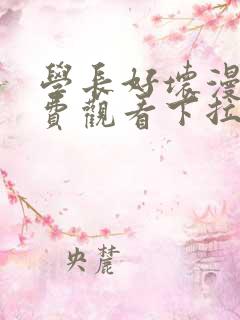 學長好壞漫
費觀看下拉
央麓